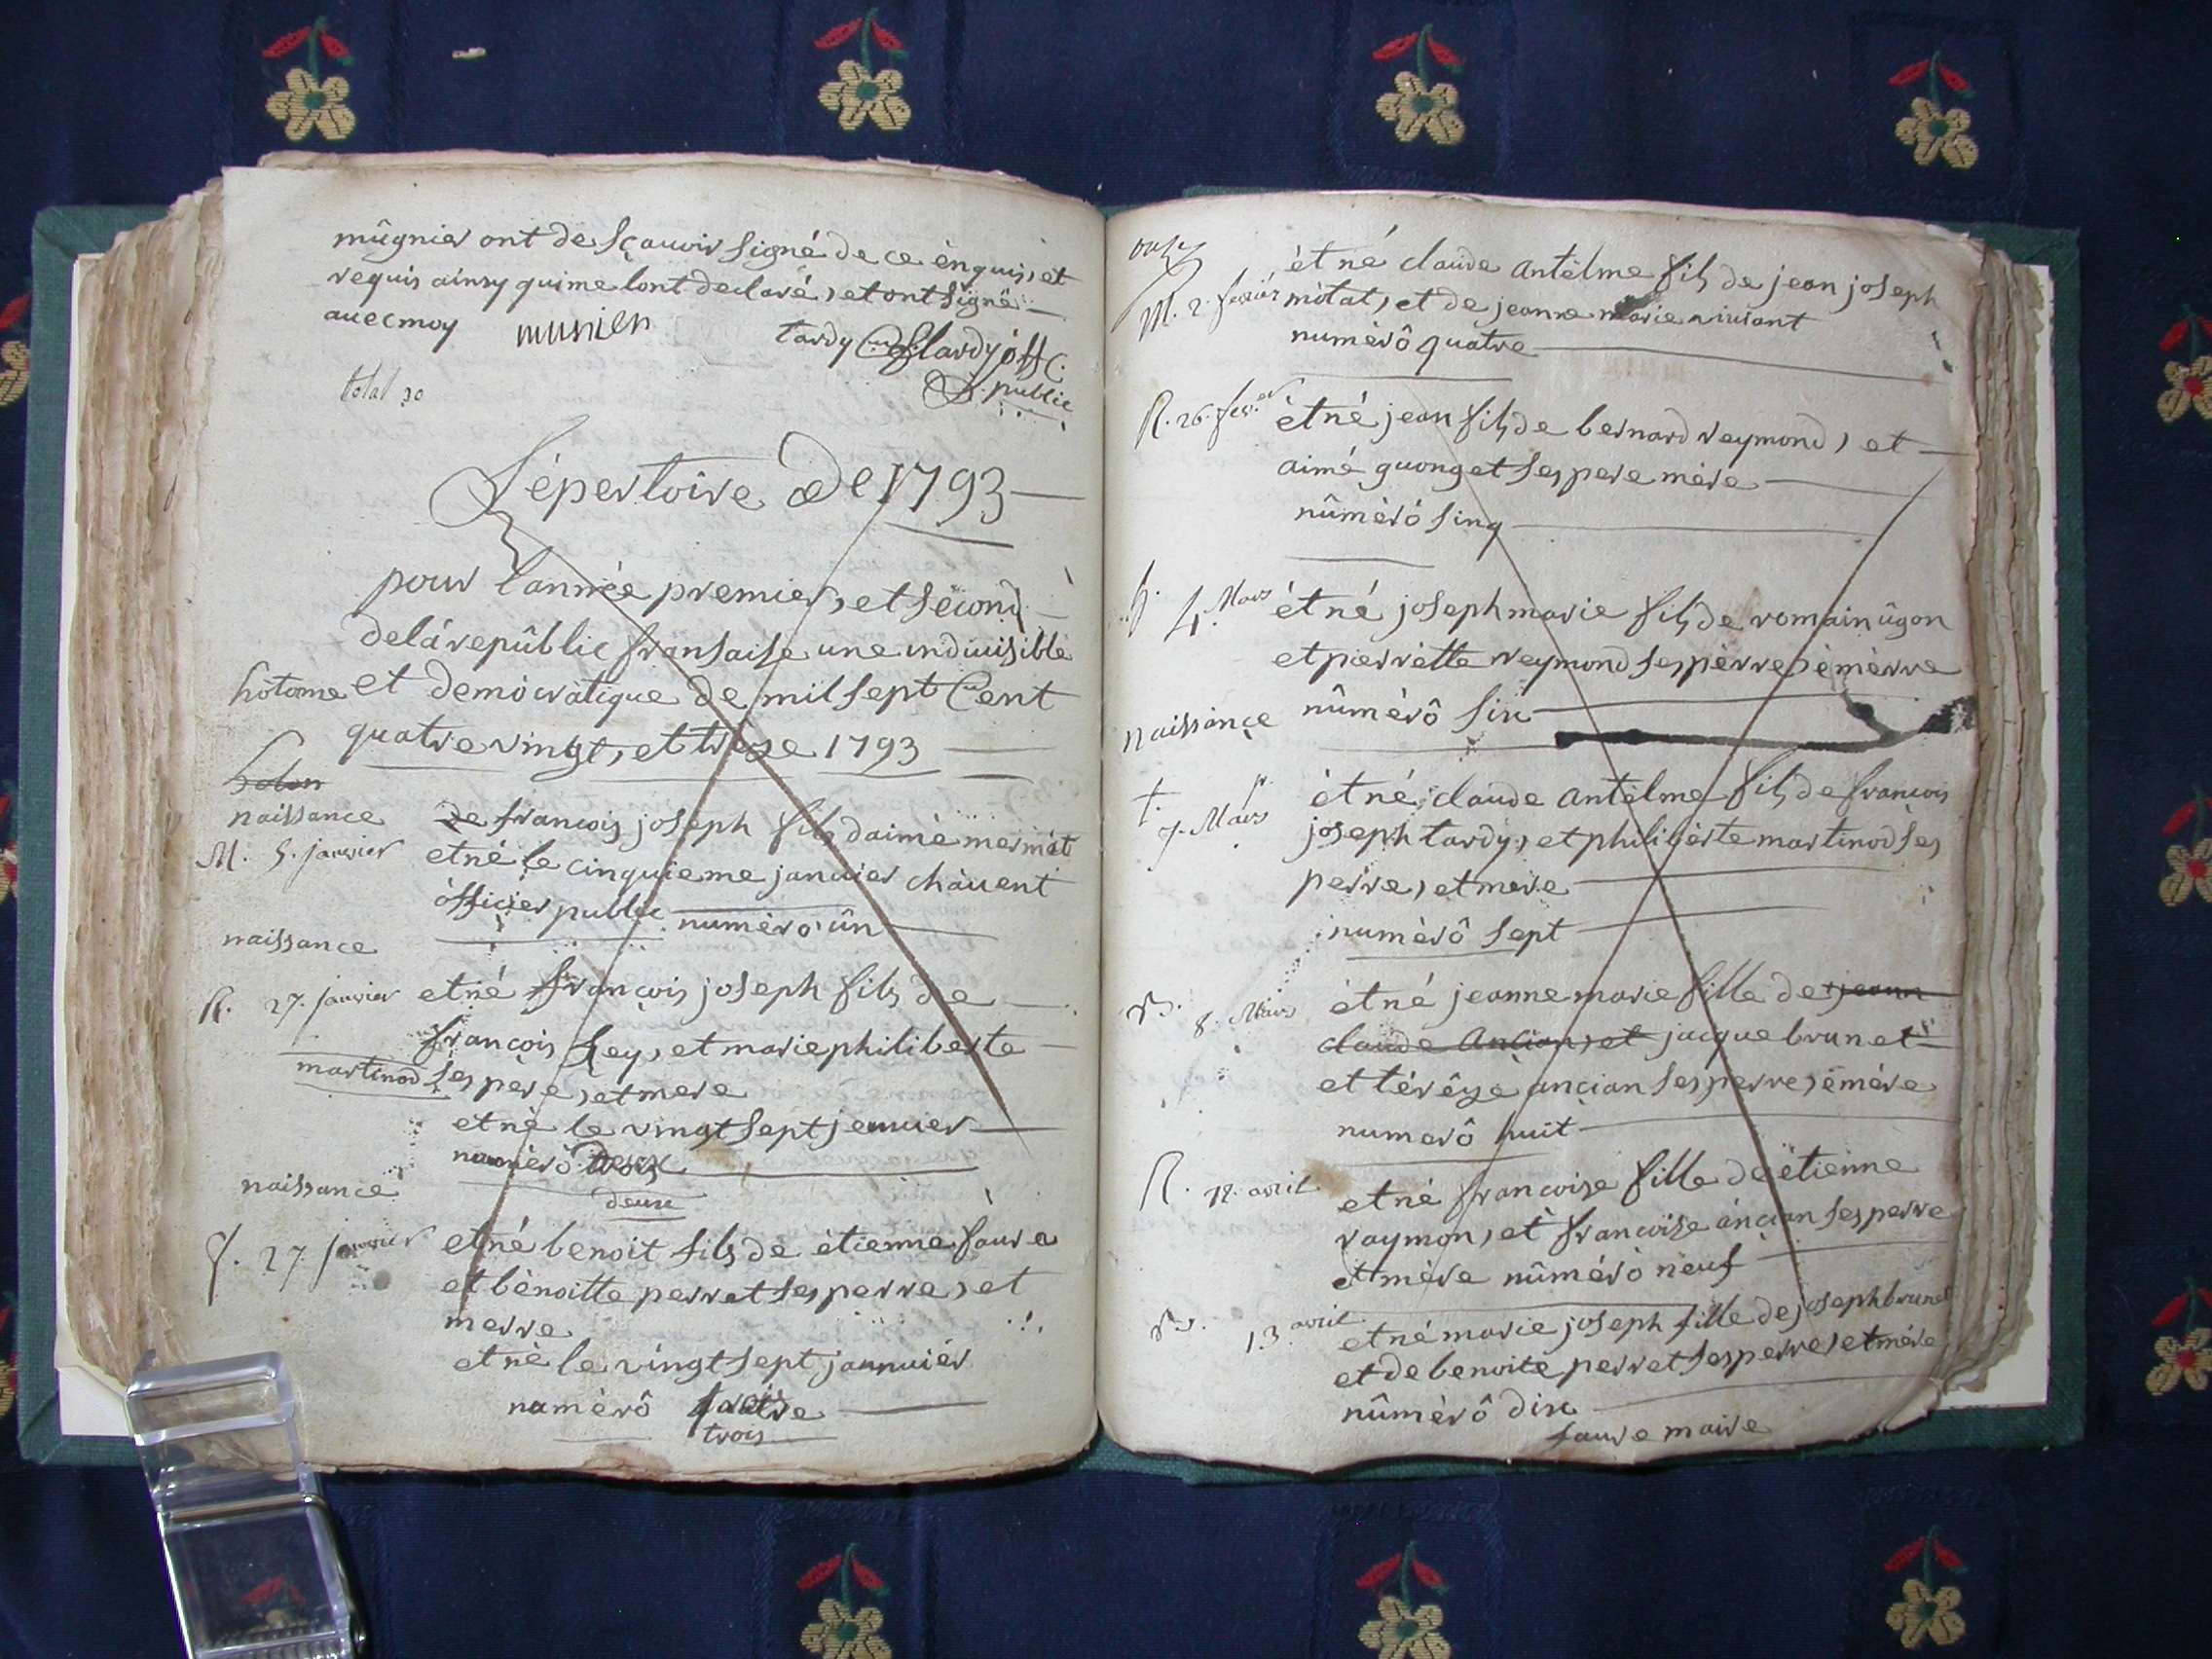 mûgnier ont de sçauoir signé de ce ènquis, èt
requis ainsy quime lont declaré, et ont signé
auec moy munier tardy
public
total 30
Répertoire de 1793
pour l'année premier, et second
delá repûblic fransaise une indiuisible
hotonne et demòcràtique de mil sept Cent
quatre vingt, et treze 1793
naissance
de francois joseph fils daimè mermét
M. 5. janvier
et né le cinquieme januier chàuent
òfficier public numèro ûn
naissance
R. 27. janvier et né francois joseph fils de
francois Rey, et marie philiberte
martinod ses père, et mere
et nè le vingt sept jenuier
numèrô deux
deux
naissance
f. 27. janvier et né benoit fils de ètienne faure
et bènoitte perret ses perre, et
merre
et nè le vingt sept jannuièr
numèrô
trois
èt né claude Antèlme fils de jean joseph
M. 2. fevrier mòtat, et de jeanne marie
numèrô quatre
R. 26. fevr.er èt né jean fils de bernard reymond, et
aimé guonget ses pere mère
nûmèrô sinq
h. 4. Mars èt né joseph marie fils de romain ûgon
et pierrètte reymond ses pèrre, è mèrre
nûmèrô six
naissançe
t. 7. Mars èt né claude Antèlme fils de francois
joseph tardy, et philibèrte martinod ses
perre, et mere
numèrô sept
8. Mars èt né jeanne marie fille de jean
claude Ancian, et jacque brunet
et tèrêze ancian ses perre, è mère
numerô huit
R. 12. avril et nè francoise fille de ëtienne
raymon, et francoise áncian ses perre
et mère nûmèrò neuf
13 avril et né marie joseph fille de joseph brunet
et de benoite perret ses perre, et mère
nûmèrô dix
faure maire